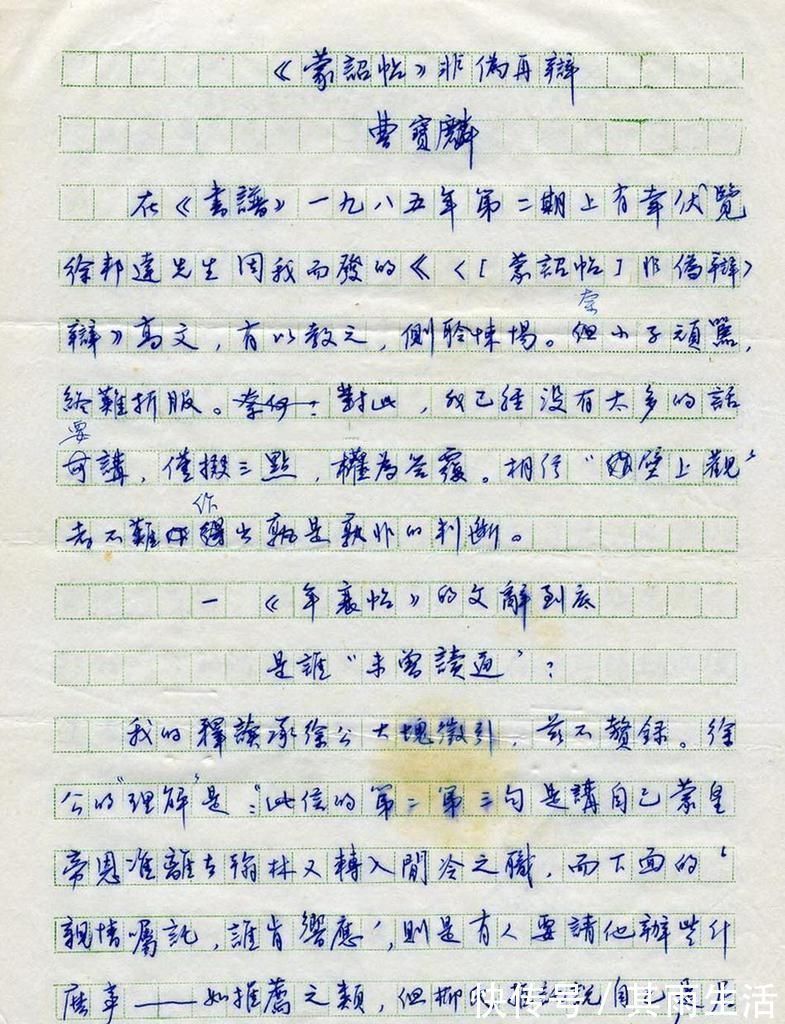 《蒙詔帖》非偽再辯
曹寶麟
在《書譜》一九八五年第二期上有幸伏覽
徐邦達先生因我而發的《〈[蒙詔帖]非偽辯〉
辯》高文，有以教之，側聆悚惕。奈但小子頑嚚，
終難折服。對此，我已經沒有太多的話
要講，僅掇三點，權為答覆。相信“壁上觀”
者不難作出孰是孰非的判斷。
一 《年衰帖》的文辭到底
是誰“未曾讀通”？
我的釋讀承徐公大塊徵引，茲不贅錄。徐
公的“理解”是：“此信的第二第三句是講自己蒙皇
帝恩准離去翰林又轉入閒冷之職，而下面的‘
親情囑託，誰肯響應’，則是有人要請他辦些什
麼事——如推薦之類，但柳說自己是
快传号/其雨生活